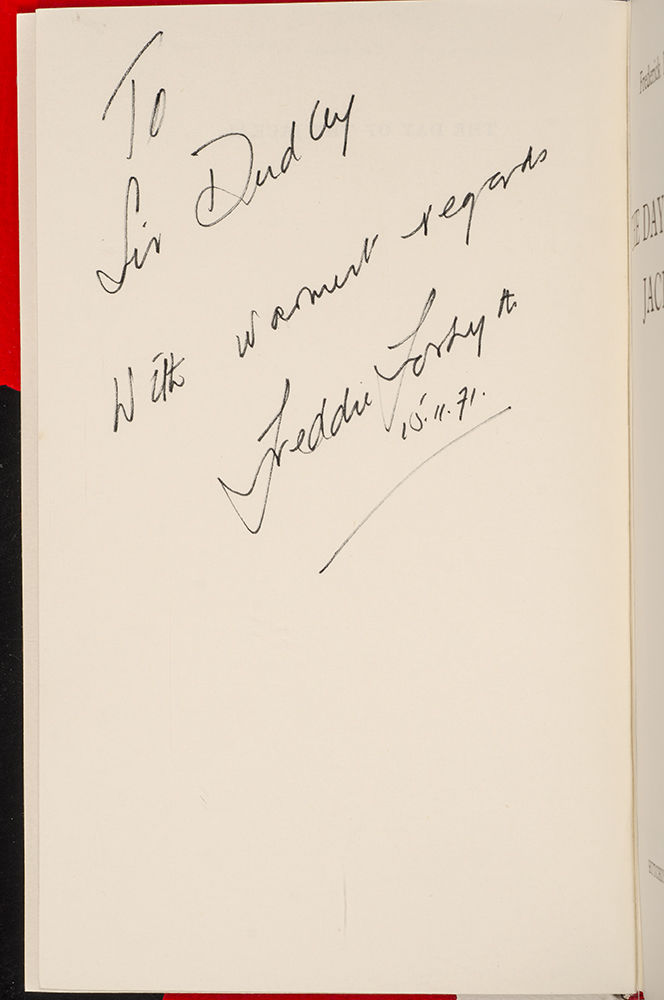 To
Sir Dudley
With warmest regards
Freddie Forsyth
15.11.71.
THE DAY OF
Frederick
E DAY
JAC
HUTCH